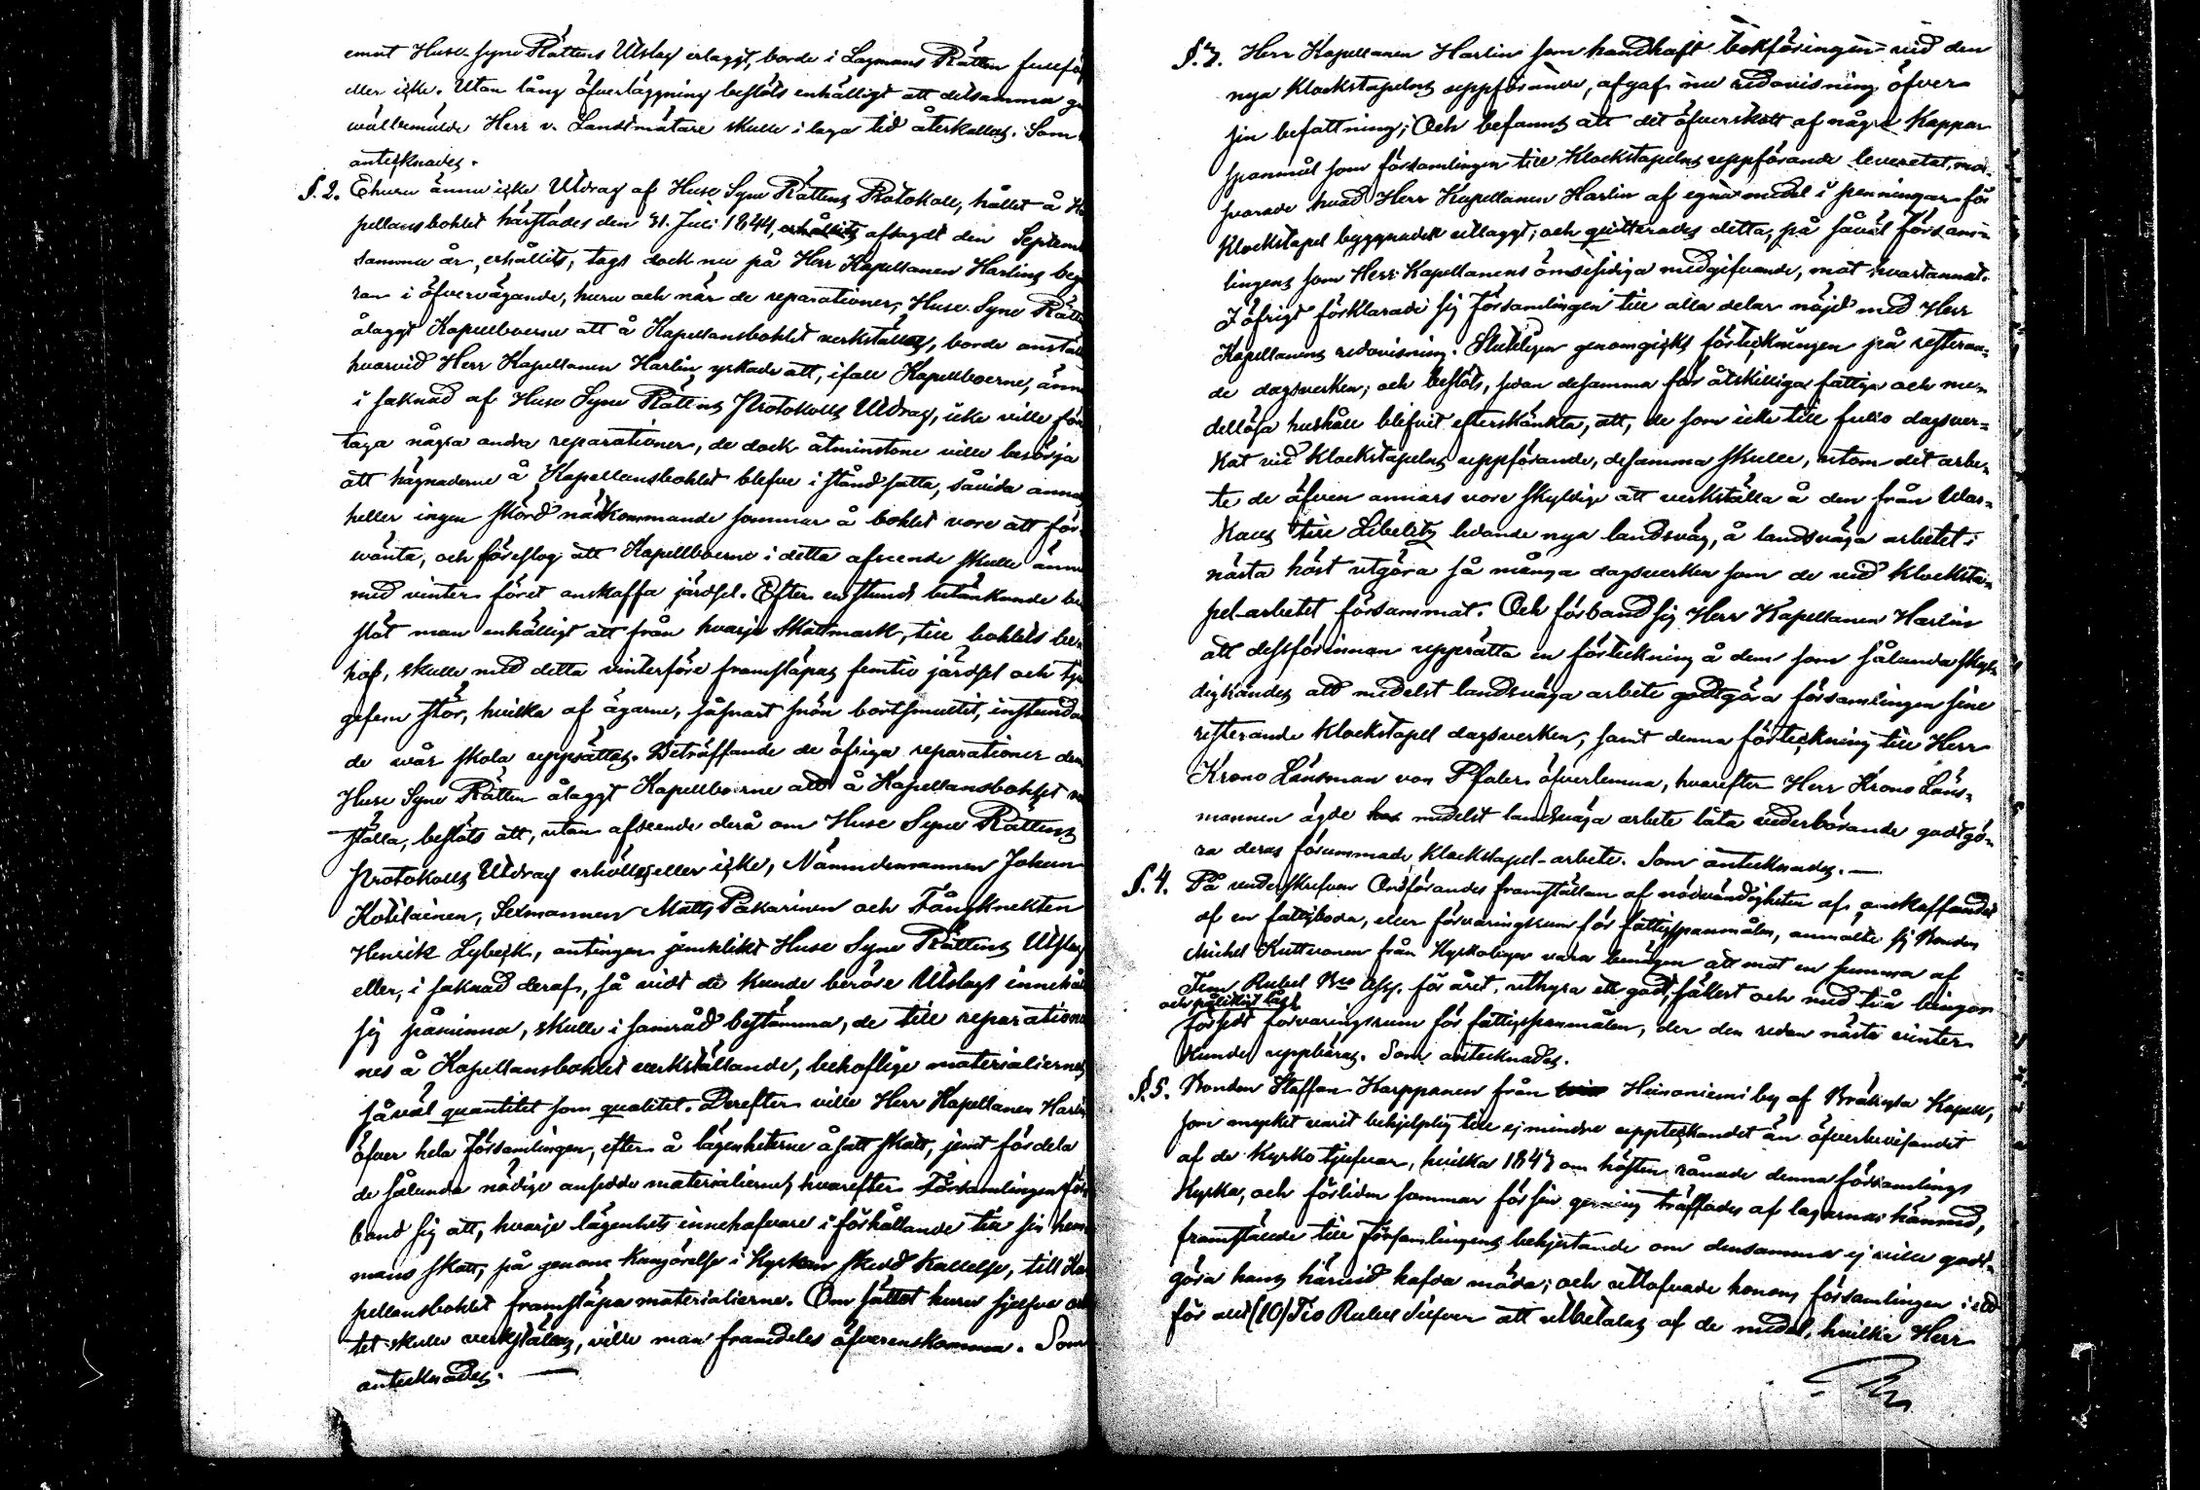 emot Huse-Syne Rättens Utslag erlaggt, borde i Lagmans Rätten fullfö
eller icke. Utan lång öfverläggning beslöts enhälligt att detsamma g
wälbemälde Herr v. Landtmätare skulle i laga tid återkallas. Som
antecknades.
§. 2. Ehuru ännu icke Utdrag af Huse Syne Rättens Protokoll, hållet å K
pellansbohlet härstädes den 31. Juli 1844, afsagdt den Septem
samma år, erhållits, togs dock nu på Herr Kapellanen Harlins begä
ran i öfvervägande, huru och när de reparationer, Huse Syne Rätte
ålaggt Kapellboerne att å Kapellansbohlet verkställas, borde anstäl
hvarvid Herr Kapellanen Harlin yrkade att, ifall Kapellboerne, ännu
i saknad af Huse Syne Rättens Protokolls Utdrag, icke ville för
taga några andra reparationer, de dock åtminstone ville besörja
att hägnaderne å Kapellansbohlet blefve i stånd satta, såvida anna
heller ingen skörd nästkommande sommar å bohlet vore att för-
wänta, och föreslog att Kapellboerne i detta afseende skulle ännu
med vinter föret anskaffa järdsel. Efter en stunds betänkande be
slöt man enhälligt att från hvarje skattmark, till bohlets be-
hof, skulle med detta vinterföre framsläpas femtio järdsel och tju
gofem stör, hvilka af ägarne, såsnart snön bortsmultit, instunda
de vår skola uppsättas. Beträffande de öfriga reparationer dem
Huse Syne Rätten ålaggt Kapellboerne att å Kapellansbohlet v
ställa, beslöts att, utan afseende derå om Huse Syne Rättens
Protokolls Utdrag erhölles eller icke, Nämndemannen Johan
Kotilainen, Sexmannen Matts Pakarinen och Fångknekten
Henrik Lybeck, antingen jemnlikt Huse Syne Rättens Utslag
eller, i saknad deraf, så vidt de kunde beröre Utslags innehål
sig påminna, skulle i samråd bestämma, de till reparatione
nes å Kapellansbohlet verkställande, behoflige materialiernes
såväl quantitet som qualitet. Derefter ville Herr Kapellanen Harlin
öfver hela Församlingen, efter å lägenheterne åsatt skatt, jemt fördela
de sålunda nödige ansedde materialierne, hvarefter Församlingen för
band sig att, hvarje lägenhets innehafvare i förhållande till sin hem
mans skatt, på genom kungörelse i Kyrkan skedd kallelse, till Ka
pellansbohlet framsläpa materialierne. Om sättet huru sjelfve
tet skulle verkställas, ville man framdeles öfverenskomma. Som
antecknades. —
§. 3. Herr Kapellanen Harlin som handhaft bokföringen vid den
nya klockstapelns uppförande, afgaf nu redovisning öfver
sin befattning; Och befanns att det öfverskott af några Kappar
spanmål som församlingen till Klockstapelns uppförande levererat, mot-
svarade hvad Herr Kapellanen Harlin af egna medel i penningar för
Klockstapel byggnaden utlaggt; och quitterades detta, på såväl försam-
lingens som Herr Kapellanens ömsesidiga medgifvande, mot hvartannat.
I öfrigt förklarade sig Församlingen till alla delar nöjd med Herr
Kapellanens redovisning. Slutligen genomgicks förteckningen på resteran-
de dagsverken; och beslöts, sedan desamma för åtskilliga fattiga och me-
dellösa hushåll blifvit efterskänkta, att, de som icke till fullo dagsver-
kat vid Klockstapelns uppförande, desamma skulle, utom det arbe-
te de äfven annars vore skyldige att verkställa å den från War-
kaus till Libelitz ledande nya landsväg, å landsväga arbetet i
nästa höst utgöra så många dagsverken som de vid Klocksta-
pel-arbetet försummat. Och förband sig Herr Kapellanen Harlin
att dessförinnan upprätta en förteckning å dem som sålunda skyl-
digkändes att medelst landsväga arbete godtgöra församlingen sine
resterande Klockstapel dagsverken, samt denna förteckning till Herr
Krono Länsman von Pfaler öfverlemna, hvarefter Herr Krono Läns-
mannen ägde medelst landsväga arbete låta vederbörande godtgö-
ra deras försummade Klockstapel-arbete. Som antecknades. —
§. 4. På underskrefven Ordförandes framställan af nödvändigheten af anskaffandet
af en fattigboda, eller förvaringsrum för fattigspanmålen, anmälte sig Bonden
Michel Kutteronen från Kyrkobyn vara benägen att mot en summa af
Fem Rubel Bco Ass. för året, uthyra ett godt, säkert och med två bingar
och pålitligt lås
försedt förvaringsrum för fattigspanmålen, der den redan nästa vinter
kunde uppbäras. Som antecknades.
§. 5. Bonden Staffan Karppanen från Heinoniemi by af Bräkylä Kapell,
som mycket varit behjelplig till ej mindre upptäckandet än öfverbevisandet
af de Kyrko tjufvar, hvilka 1847 om hösten rånade denna församlings
Kyrka, och förliden sommar för sin gerning träffades af lagarnas hämnd,
framställde till Församlingens behjertande om densamma ej ville godt-
göra hans härvid hafda möda; och utlofvade honom församlingen i ett
för allt (10) Tio Rubel Silfver att utbetalas af de medel, hvilka Herr